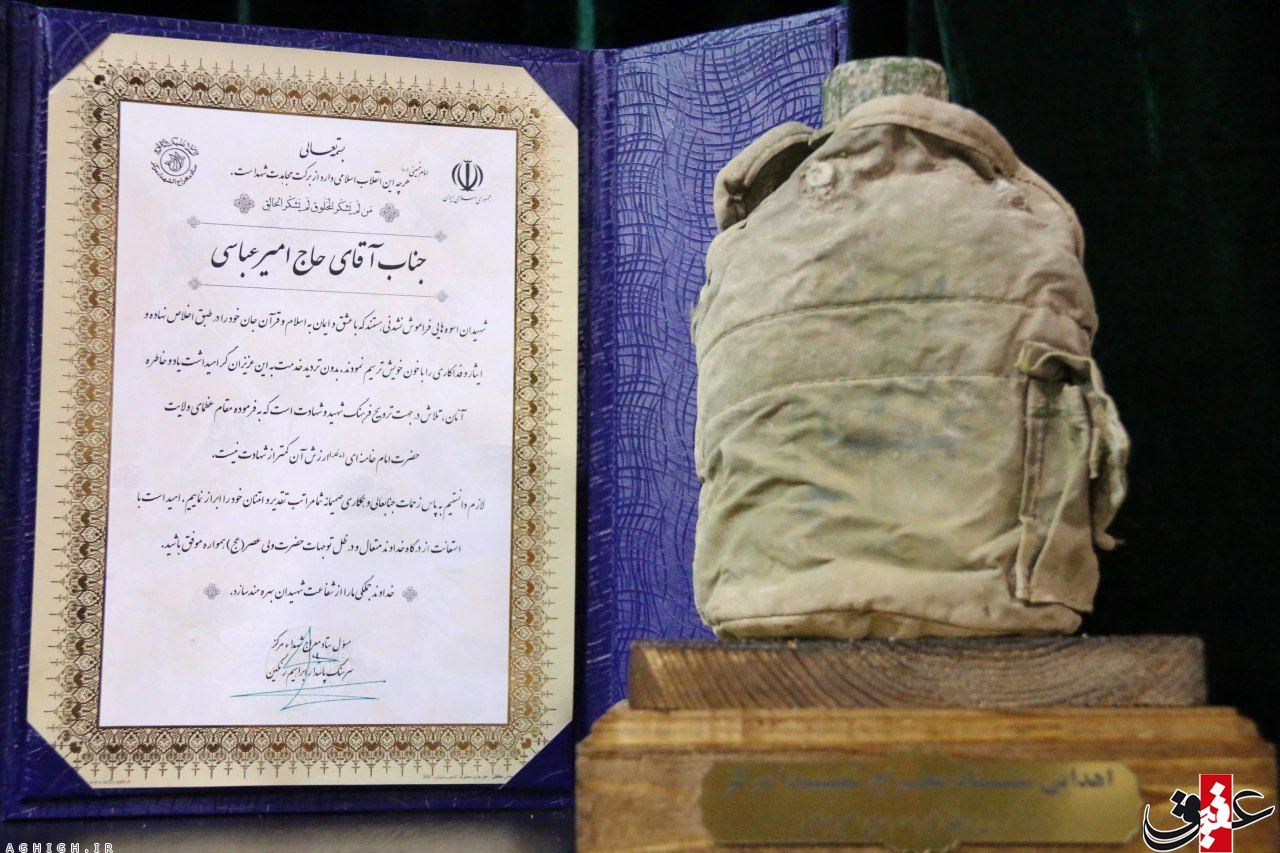 بسمه تعالی
امام خمینی (ره):
هر چه این انقلاب اسلامی دارد از برکت مجاهدت شهداست.
جمهوری اسلامی ایران
مَن لَم یَشکُر المَخلوق لَم یَشکُر الخالِق
جناب آقای حاج امیر عباسی
شهیدان اسوه هایی فراموش نشدنی هستند که با عشق و ایمان به اسلام و قرآن جان خود را در طبق اخلاص نهاده و
ایثار و فداکاری را با خون خویش ترسیم نمودند. بدون تردید خدمت به این عزیزان گرامیداشت یاد و خاطره
آنان، تلاش در جهت ترویج فرهنگ شهید و شهادت است که به فرموده مقام عظمای ولایت
حضرت امام خامنه ای ارزش آن کمتر از شهادت نیست.
لازم دانستیم به پاس زحمات جنابعالی و همکاری صمیمانه شما مراتب تقدیر و امتنان خود را ابراز نماییم. امید است با
استعانت از درگاه خداوند متعال و در ظل توجهات حضرت ولی عصر (عج) همواره موفق باشید.
خداوند جملگی ما را از شفاعت شهیدان بهره مند سازد.
مسؤل ستاد معراج شهداء مرکز
سرهنگ پاسدار ابراهیم رنگین
اهدایی
عقیق
AGHIGH.IR